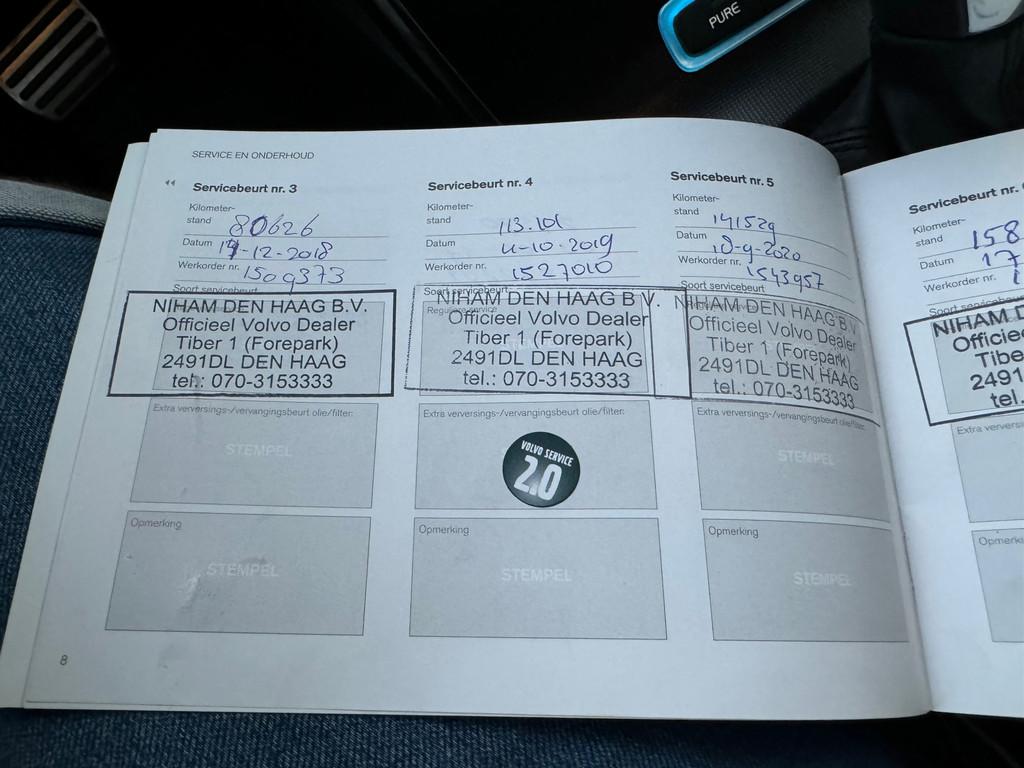 PURE
SERVICE EN ONDERHOUD
Servicebeurt nr. 3
Kilometer-
stand 80626
Datum 17-12-2018
Werkorder nr. 1509373
Soort servicebeurt
NIHAM DEN HAAG B.V.
Officieel Volvo Dealer
Tiber 1 (Forepark)
2491DL DEN HAAG
tel.: 070-3153333
Extra verversings-/vervangingsbeurt olie/filter:
STEMPEL
Opmerking
STEMPEL
8
Servicebeurt nr. 4
Kilometer-
stand 113.101
Datum 4-10-2019
Werkorder nr. 1527010
Soort servicebeurt
NIHAM DEN HAAG B.V.
Officieel Volvo Dealer
Tiber 1 (Forepark)
2491DL DEN HAAG
tel.: 070-3153333
Extra verversings-/vervangingsbeurt olie/filter:
VOLVO SERVICE
2.0
Opmerking
STEMPEL
Servicebeurt nr. 5
Kilometer-
stand 141529
Datum 10-9-2020
Werkorder nr. 1543957
Soort servicebeurt
NIHAM DEN HAAG B.V.
Officieel Volvo Dealer
Tiber 1 (Forepark)
2491DL DEN HAAG
tel.: 070-3153333
Extra verversings-/vervangingsbeurt olie/filter:
STEMPEL
Opmerking
STEMPEL
Servicebeurt nr.
Kilometer-
stand 158
Datum 17
Werkorder nr. 1
Soort servicebeurt
NIHAM D
Officie
Tibe
2491
tel.
Extra verversi
Opmerki